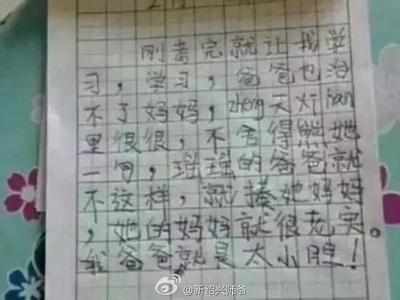 刚考完就让我学
习，学习，爸爸也治
不了妈妈，zheng天灯han
里很很，不舍得熊她
一句，瑶瑶的爸爸就
不这样，就揍她妈妈
，她的妈妈就很老实。
我爸爸就是太小胆！
@新绍兴师爷